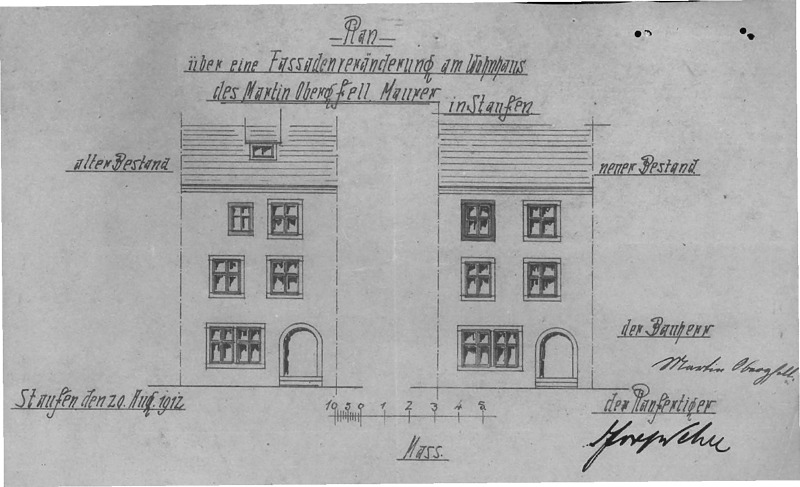 Plan
über eine Fassadenveränderung am Wohnhaus
des Martin Obergfell Maurer
in Staufen
alter Bestand
neuer Bestand
der Bauherr
Martin Obergfell
Staufen den 20. Aug. 1912
10 5 0 1 2 3 4 5
der Planfertiger
Mass.